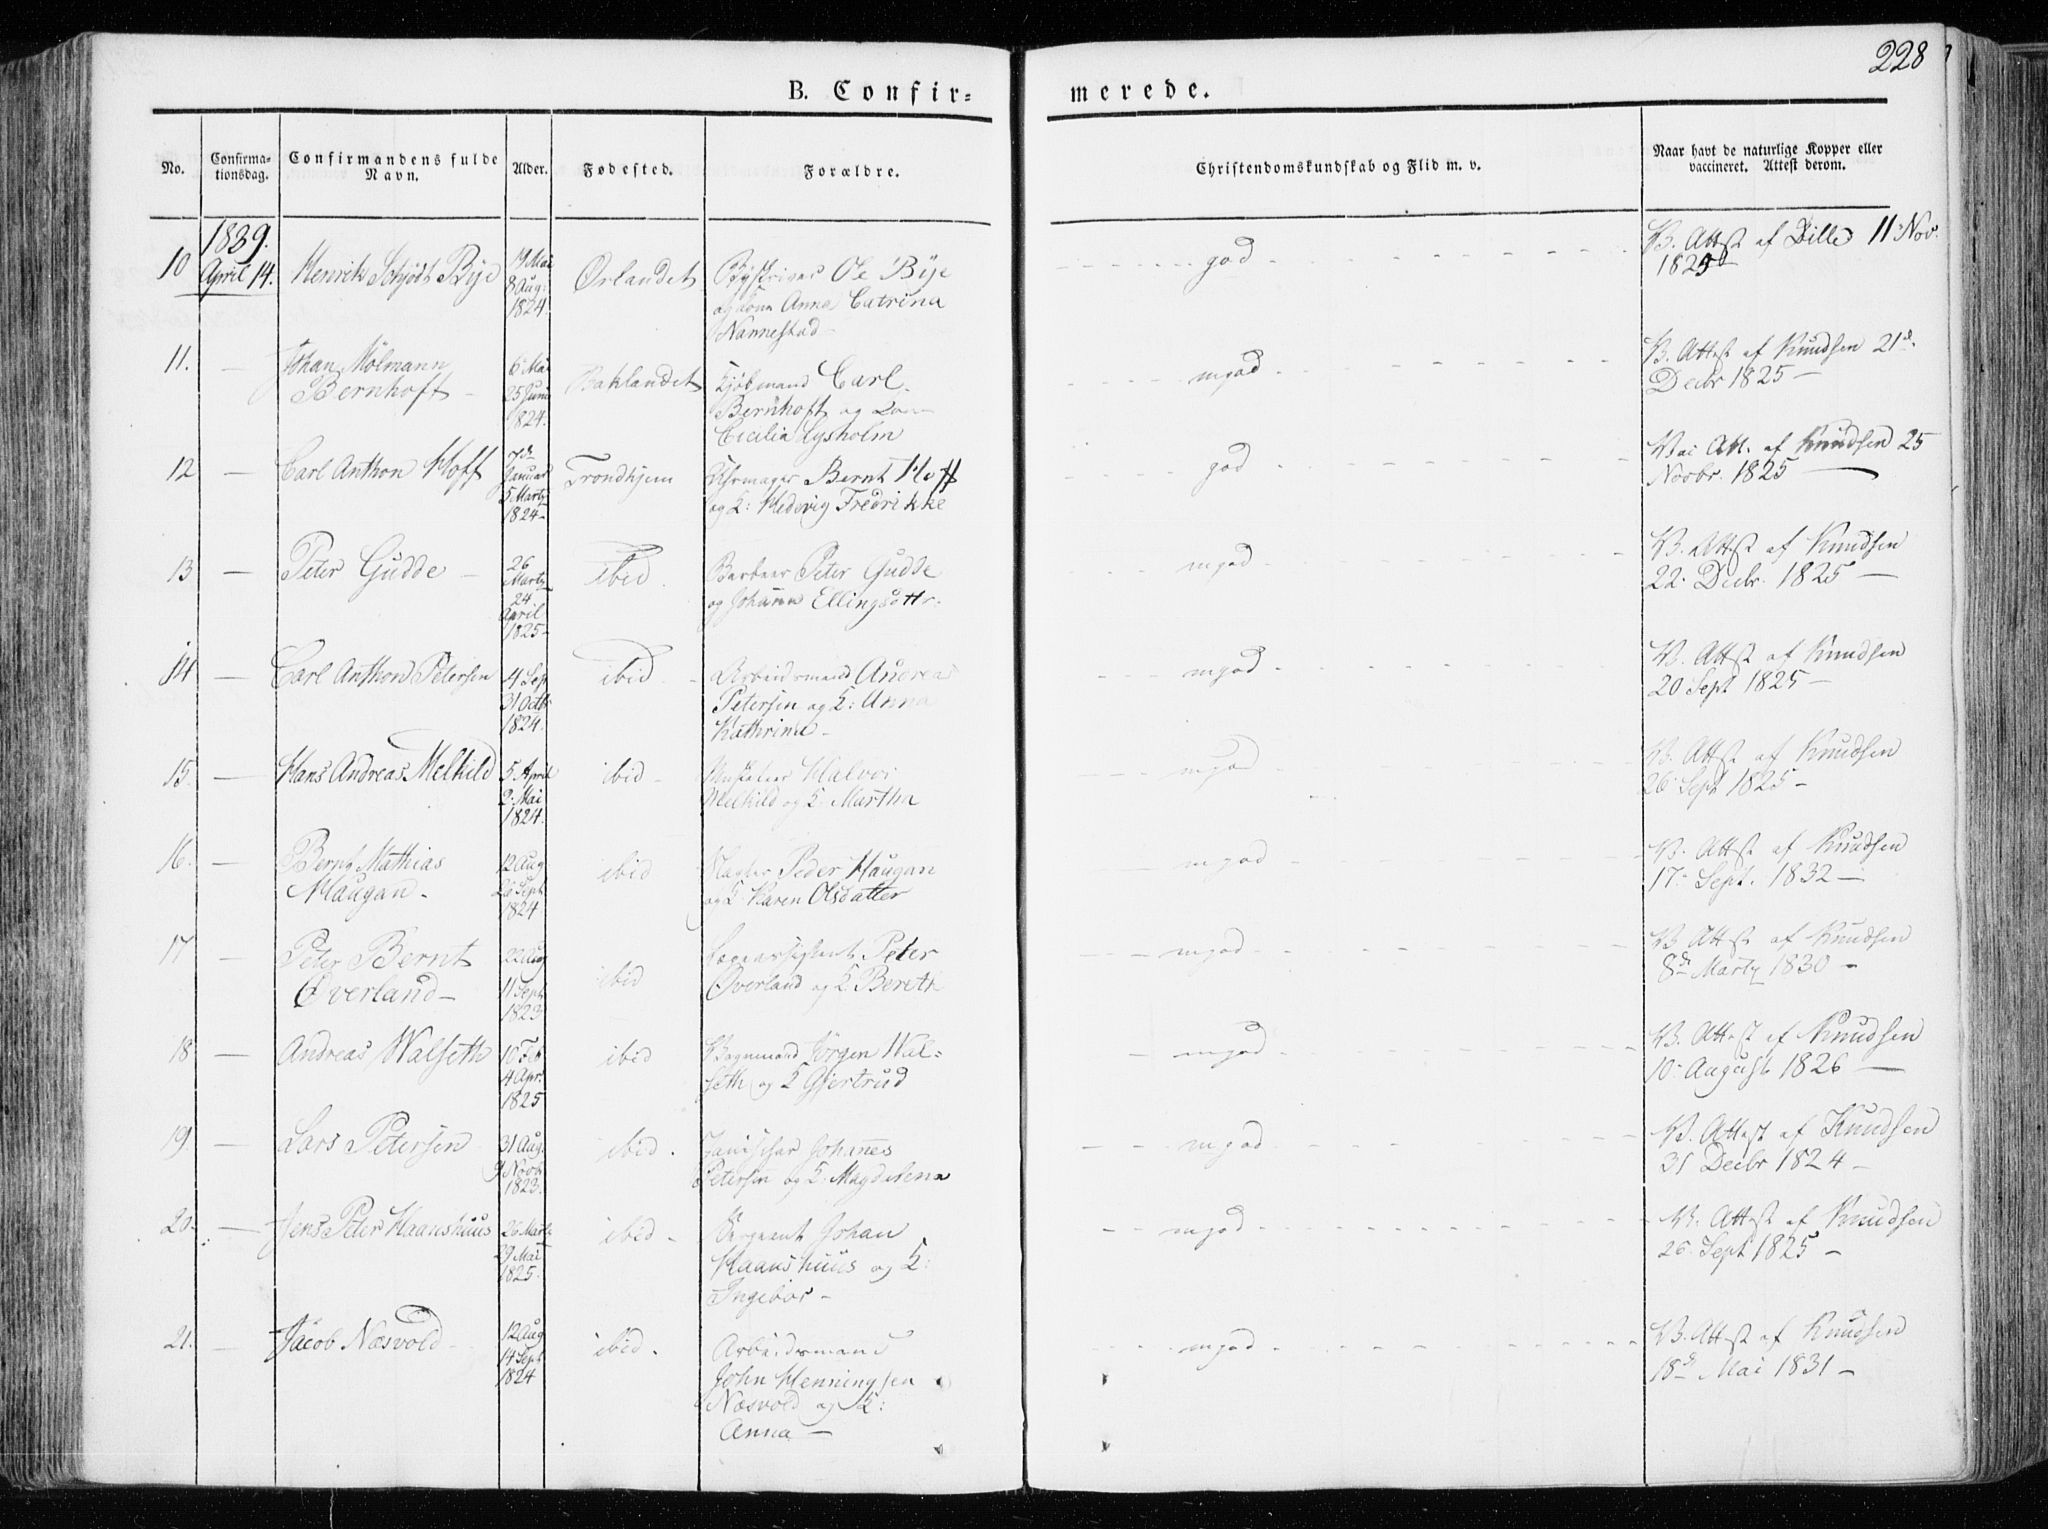 228
B. Confir- merede.
No.
Confirma-
tionsdag.
Confirmandens fulde
Navn.
Alder.
Fødested.
Forældre.
Christendomskundskab og Flid m. v.
Naar havt de naturlige Kopper eller
vaccineret. Attest derom.
1839.
10 April 14. Henrik Schjödt Bye
19 Mai
8 Aug:
1824.
Ørlandet
Ole Bye
og Kone Anna Catrina
Nannestad -
god
V. Attst af Dille 11 Nov.
1825
11. - Johan Mölmann
Bernhoft -
6 Mai
25 Juni
1824.
Baklandet
Kjöbmand Carl
Bernhoft og Kone
Cicilia Lysholm
mgod
V. Attst af Knudsen 21de
Decbr 1825 -
12 - Carl Anthon Hoff
7de
Januar
5 Marty
1824 -
Trondhjem
Uhrmager Bernt Hoff
og K: Hedevig Fredrikke
god
Vac Att. af Knudsen 25
Novbr. 1825 -
13 - Peter Gudde -
26
Marty
24
April
1825 -
ibid.
Barbeer Peter Gudde
og Johanna Ellingsdttr.
mgod
V. Attst af Knudsen
22. Decbr. 1825 -
14 - Carl Anthon Petersen
4 Sep
31 Octbr
1824.
ibid -
Arbeidsmand Andreas
Petersen og K: Anna
Kathrina -
mgod
V. Attst af Knudsen
20 Sept 1825 -
15. - Hans Andreas Melhild
5 April
2. Mai
1824.
ibid -
Halvor
Melhild og K. Martha
mgod
V. Attst af Knudsen
26 Sept 1825 -
16. - Bernt Mathias
Haugan -
12 Aug
26 Sept
1824
ibid
Slagter Peder Haugan
og K Karen Olsdatter
mgod
V. Attst af Knudsen
17de Sept. 1832 -
17 - Peter Bernt
Överland -
22 Aug
11 Sept
1823
ibid
Peter
Överland og K Bereth
mgod
V Attst af Knudsen
8de Marty 1830 -
18 - Andreas Walseth
10 Feb
4 Apr.
1825
ibid
Vognmand Jörgen Wal-
seth og K Gjertrud
mgod
V. Attest af Knudsen
10. August 1826 -
19. - Lars Petersen
31 Aug.
9 Novb
1823.
ibid.
Johannes
Petersen og K. Magdalena
mgod
V. Attest af Knudsen
31 Decbr 1824 -
20. - Jens Peter Haanshuus
26 Marts
29 Mai
1825.
ibid -
Sergeant Johan
Haanshuus og K:
Ingebor -
mgod
V. Attest af Knudsen
26. Sept 1825 -
21. - Jacob Næsvold -
12 Aug
14 Sept
1824
ibid.
Arbeidsmand
John Henningsen
Næsvold og K:
Anna -
mgod
V. Attst af Knudsen
18de Mai 1831 -